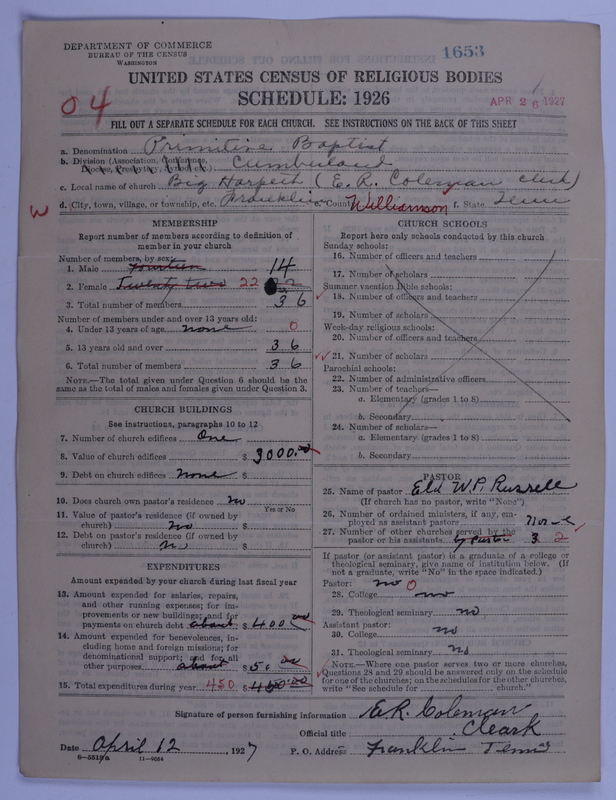 DEPARTMENT OF COMMERCE
BUREAU OF THE CENSUS
WASHINGTON
1653
UNITED STATES CENSUS OF RELIGIOUS BODIES
SCHEDULE: 1926
04
APR 26 1927
FILL OUT A SEPARATE SCHEDULE FOR EACH CHURCH. SEE INSTRUCTIONS ON THE BACK OF THIS SHEET
a. Denomination Primitive Baptist
b. Division (Association, Conference, Diocese, Presbytery, etc.) Cumberland
c. Local name of church Big Harpeth (E. R. Coleman clerk)
d. City, town, village, or township, etc. Franklin e. County Williamson f. State Tenn
W
MEMBERSHIP
Report number of members according to definition of member in your church
Number of members, by sex:
1. Male fourteen 14
2. Female Twenty two 22
3. Total number of members 36
Number of members under and over 13 years old:
4. Under 13 years of age none 0
5. 13 years old and over 36
6. Total number of members 36
NOTE.—The total given under Question 6 should be the same as the total of males and females given under Question 3.
CHURCH BUILDINGS
See instructions, paragraphs 10 to 12
7. Number of church edifices One
8. Value of church edifices $ 3000.00
9. Debt on church edifices None $
10. Does church own pastor's residence no
Yes or No
11. Value of pastor's residence (if owned by church) No $
12. Debt on pastor's residence (if owned by church) No $
EXPENDITURES
Amount expended by your church during last fiscal year
13. Amount expended for salaries, repairs, and other running expenses; for improvements or new buildings; and for payments on church debt about $ 400.00
14. Amount expended for benevolences, including home and foreign missions; for denominational support; and for all other purposes about $ 50.00
15. Total expenditures during year 450 $ 450.00
CHURCH SCHOOLS
Report here only schools conducted by this church
Sunday schools:
16. Number of officers and teachers
17. Number of scholars
Summer vacation Bible schools:
18. Number of officers and teachers
19. Number of scholars
Week-day religious schools:
20. Number of officers and teachers
21. Number of scholars
Parochial schools:
22. Number of administrative officers
23. Number of teachers—
a. Elementary (grades 1 to 8)
b. Secondary
24. Number of scholars—
a. Elementary (grades 1 to 8)
b. Secondary
PASTOR
25. Name of pastor Eld W. P. Russell
(If church has no pastor, write "None").
26. Number of ordained ministers, if any, employed as assistant pastors None
27. Number of other churches served by the pastor or his assistants by Pastor 3 2
If pastor (or assistant pastor) is a graduate of a college or theological seminary, give name of institution below. (If not a graduate, write "No" in the space indicated.)
Pastor: no 0
28. College no
29. Theological seminary no
Assistant pastor:
30. College no
31. Theological seminary no
NOTE.—Where one pastor serves two or more churches, Questions 28 and 29 should be answered only on the schedule for one of the churches; on the schedules for the other churches, write "See schedule for church."
Signature of person furnishing information E. R. Coleman
Official title Cleark
Date April 12, 1927 P. O. Address Franklin Tenn
6—5513a 11—9054